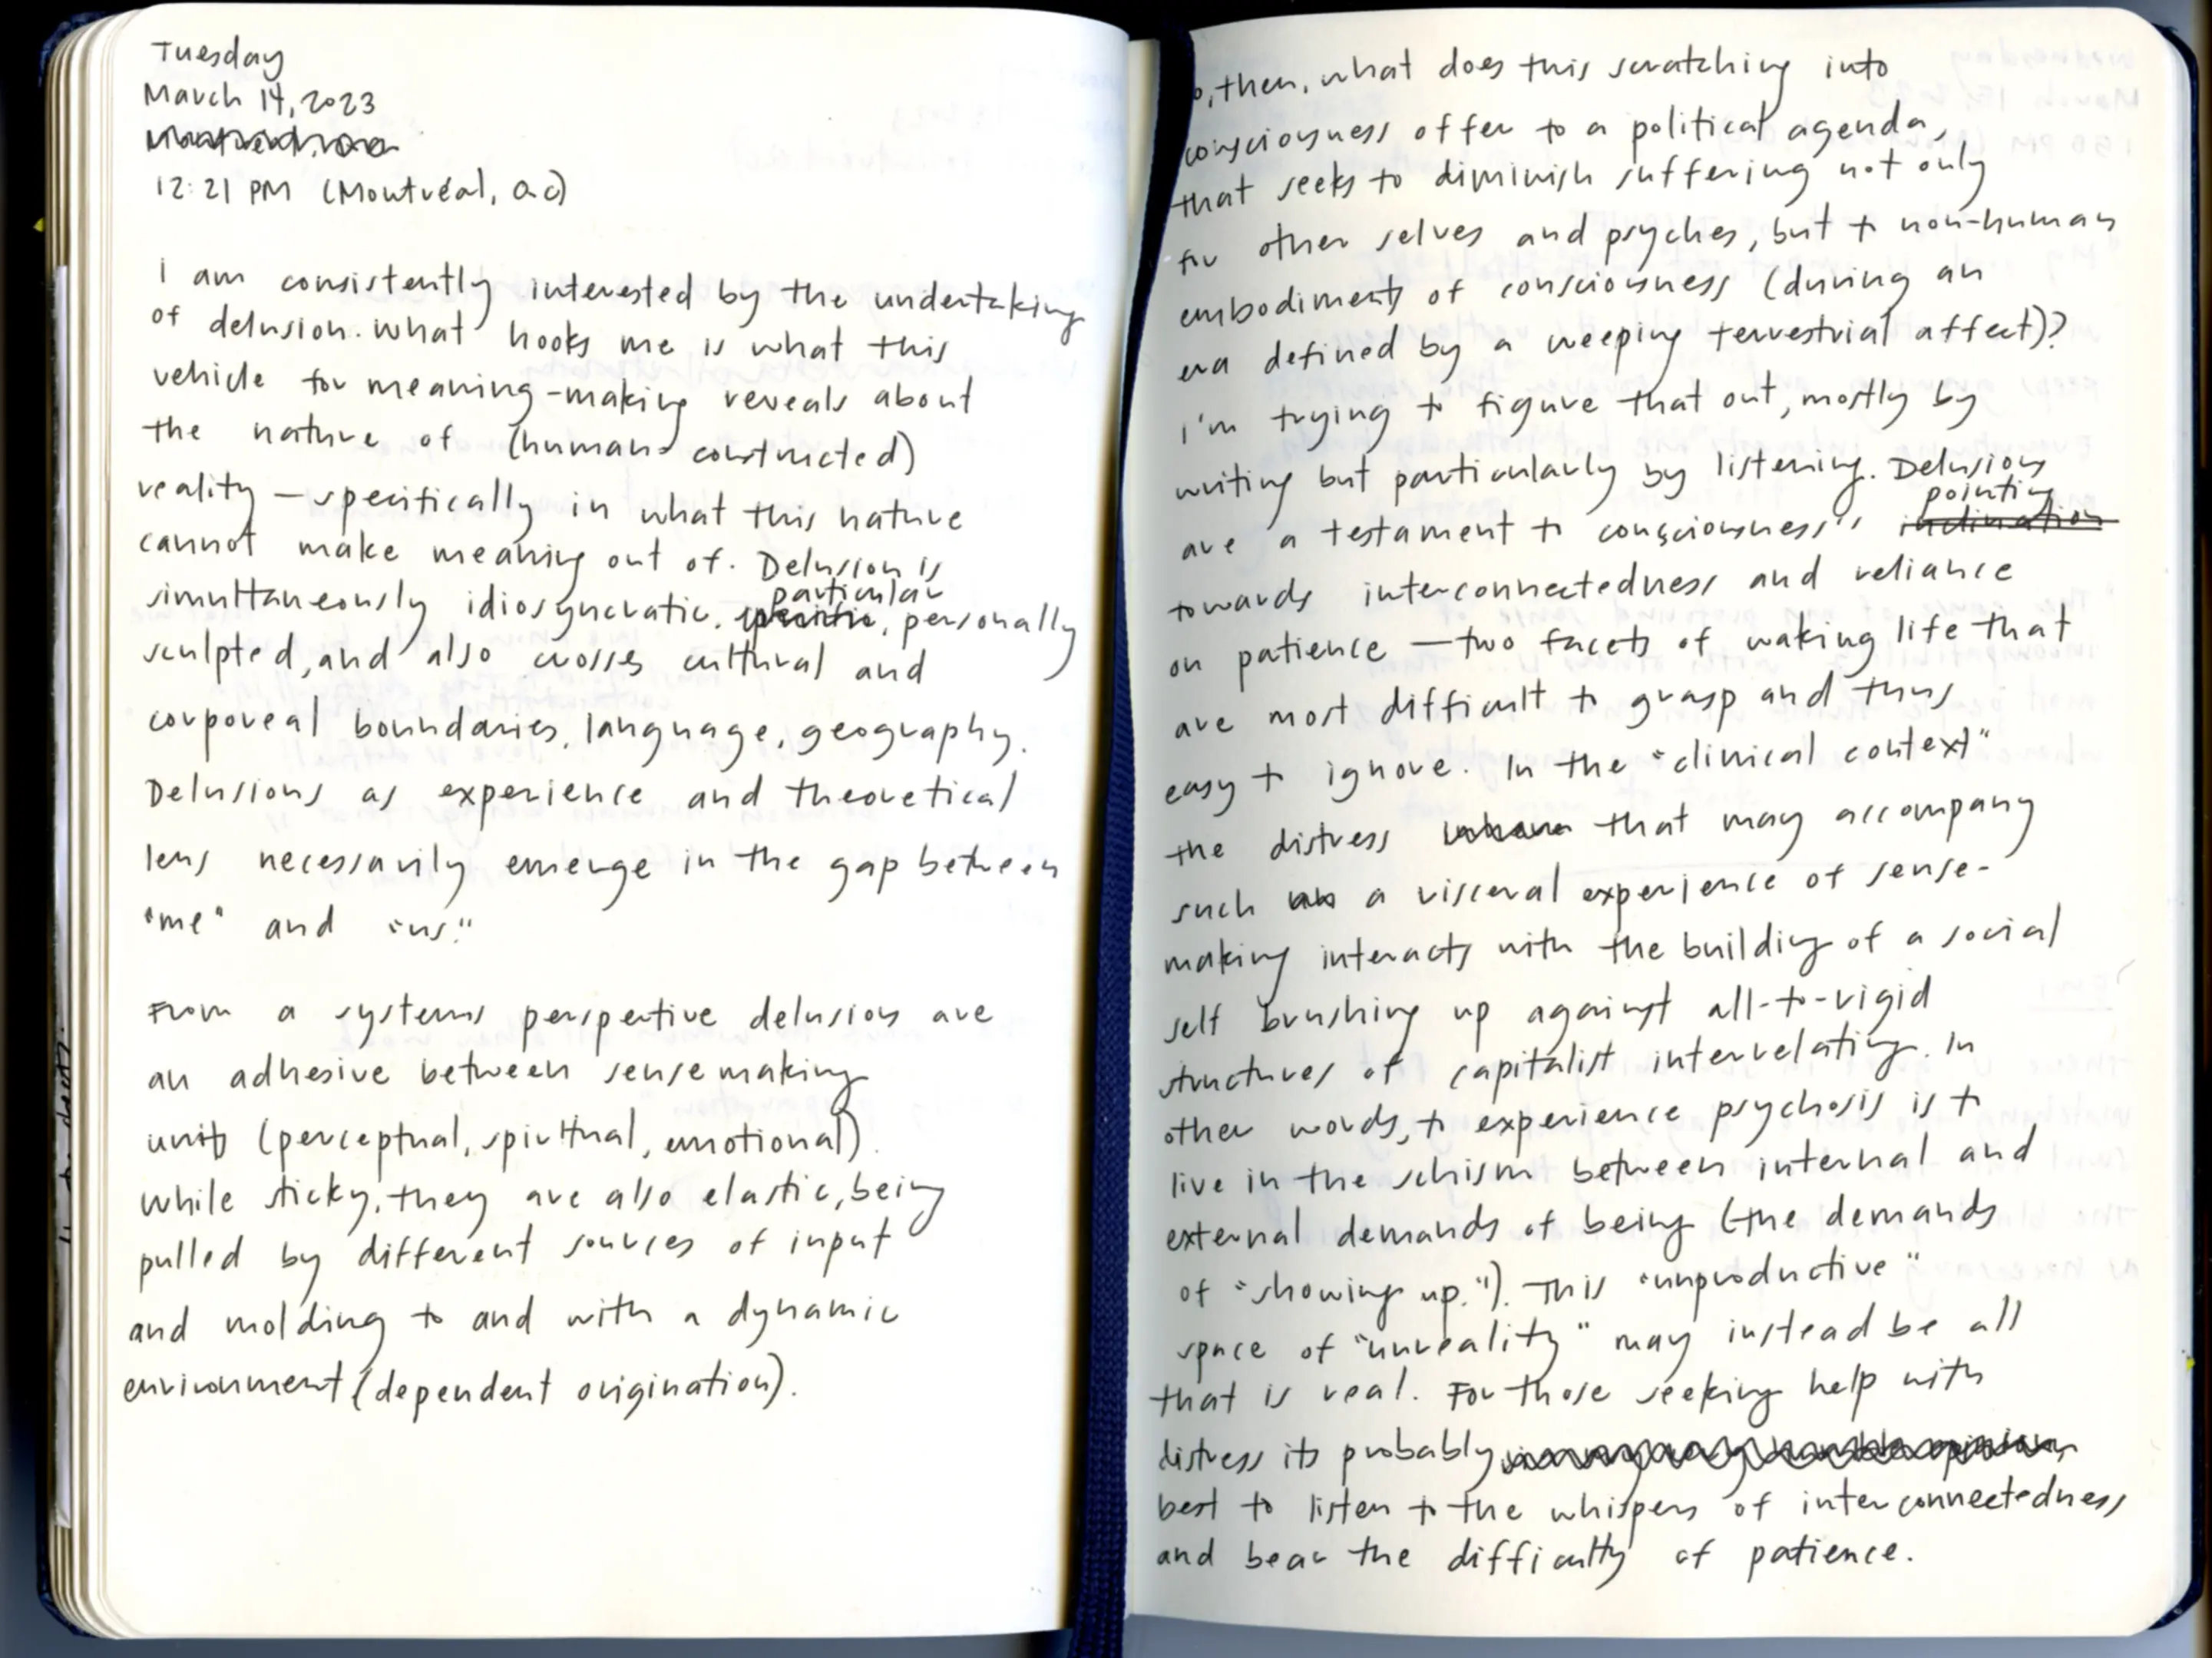 Tuesday
March 14, 2023
12:21 PM (Montréal, QC)
I am consistently interested by the undertaking
of delusion. What hooks me is what this
vehicle for meaning-making reveals about
the nature of (human-constructed)
reality — specifically in what this nature
cannot make meaning out of. Delusion is
particular
simultaneously idiosyncratic, specific, personally
sculpted, and also crosses cultural and
corporeal boundaries, language, geography.
Delusions as experience and theoretical
lens necessarily emerge in the gap between
"me" and "us."
From a systems perspective delusions are
an adhesive between sensemaking
units (perceptual, spiritual, emotional).
While sticky, they are also elastic, being
pulled by different sources of input
and molding to and with a dynamic
environment (dependent origination).
then, what does this scratching into
consciousness offer to a political agenda,
that seeks to diminish suffering not only
for other selves and psyches, but to non-human
embodiments of consciousness (during an
era defined by a weeping terrestrial affect)?
I'm trying to figure that out, mostly by
writing but particularly by listening. Delusions
pointing
are a testament to consciousness's inclination
towards interconnectedness and reliance
on patience — two facets of waking life that
are most difficult to grasp and thus
easy to ignore. In the "clinical context"
the distress that may accompany
such a visceral experience of sense-
making interacts with the building of a social
self brushing up against all-to-rigid
structures of capitalist interrelating. In
other words, to experience psychosis is to
live in the schism between internal and
external demands of being (the demands
of "showing up."). This "unproductive"
space of "unreality" may instead be all
that is real. For those seeking help with
distress its probably in my very humble opinion,
best to listen to the whispers of interconnectedness
and bear the difficulty of patience.